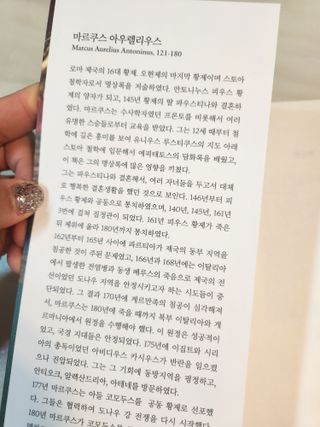 마르쿠스 아우렐리우스
Marcus Aurelius Antoninus, 121-180
로마 제국의 16대 황제. 오현제의 마지막 황제이며 스토아
철학자로서 명상록을 저술하였다. 안토니누스 피우스 황
제의 양자가 되고, 145년 황제의 딸 파우스티나와 결혼하
였다. 마르쿠스는 수사학자였던 프론토를 비롯해서 여러
유명한 스승들로부터 교육을 받았다. 그는 12세 때부터 철
학에 깊은 흥미를 보여 유니우스 루스티쿠스의 지도 아래
스토아 철학에 입문해서 에픽테토스의 담화록을 배웠고,
이 책은 그의 명상록에 많은 영향을 끼쳤다.
그는 파우스티나와 결혼해서, 여러 자녀들을 두고서 대체
로 행복한 결혼생활을 했던 것으로 보인다. 146년부터 피
우스 황제와 공동으로 통치하였으며, 140년, 145년, 161년
3번에 걸쳐 집정관이 되었다. 161년 피우스 황제가 죽은
뒤 제위에 올라 180년까지 통치하였다.
162년부터 165년 사이에 파르티아가 제국의 동부 지역을
침공한 것이 주된 문제였고, 166년과 168년에는 이탈리아
에서 발생한 전염병과 동생 베루스의 죽음으로 제국의 전
선이었던 도나우 지역을 안정시키고자 하는 시도들이 중
단되었다. 그 결과 170년에 게르만족의 침공이 심각해져
서, 마르쿠스는 180년에 죽을 때까지 북부 이탈리아와 게
르마니아에서 원정을 수행해야 했다. 이 원정은 성공적이
었고, 국경 지대들은 안정되었다. 175년에 이집트와 시리
아의 총독이었던 아비디우스 카시우스가 반란을 일으켰
으나 진압되었다. 그는 그 기회에 동방지역을 평정하고,
안티오크, 알렉산드리아, 아테네를 방문하였다.
177년 마르쿠스는 아들 코모두스를 공동 황제로 선포했
다. 그들은 협력하여 도나우 강 전쟁을 다시 시작했다.
180년 마르쿠스가 코모두스를